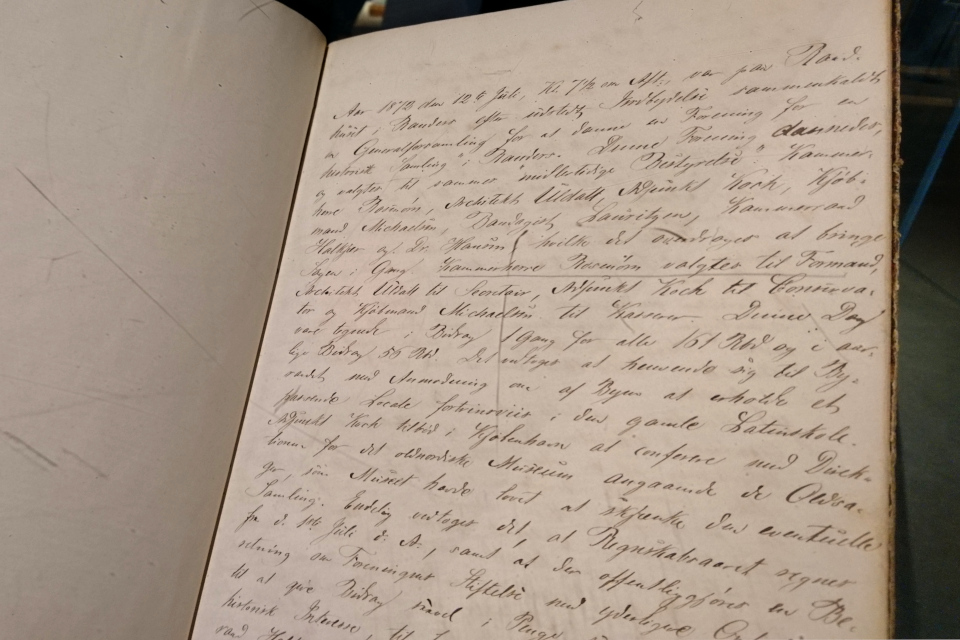 Aar 1872 den 12te Juli, Kl. 7½ em Aft., var paa Raad-
huset i Randers efter udstedt Indbydelse sammenkaldt
en Generalforsamling for at danne en Forening for en
historisk Samling i Randers. Denne Forening dannedes,
og valgtes til sammes "midlertidige Bestyrelse": Kammer-
herre Rosenørn, Architekt Uldall, Adjunkt Koch, Kjøb-
mand Michaelsen, Lauritzen, Kammerraad
Halkjær og Dr. Hansen, hvilke det overdroges at bringe
Sagen i Gang. Kammerherre Rosenørn valgtes til Formand,
Architekt Uldall til Secretair, Adjunkt Koch til Conserva-
tor og Kjøbmand Michaelsen til Kasserer. Denne Dag
vare tegnede i Bidrag 1 Gang for alle 151 Rbd og i aar-
lige Bidrag 55 Rbd. Det vedtoges at henvende sig til By-
raadet med Anmodning om af Byen at erholde et
passende Locale fortrinsviis i den gamle Latinskole.
Adjunkt Koch tilbød i Kjøbenhavn at conferere med Direk-
tionen for det oldnordiske Museum angaaende de Oldsa-
ger, som Museet havde lovet at skjænke den eventuelle
Samling. Endelig vedtoges det, at Regnskabsaaret regnes
fra d. Juli d. A., samt at der offentliggjøres en Be-
retning om Foreningens Stiftelse med yderligere
til at give Bidrag saavel i Penge
historisk Interesse, til